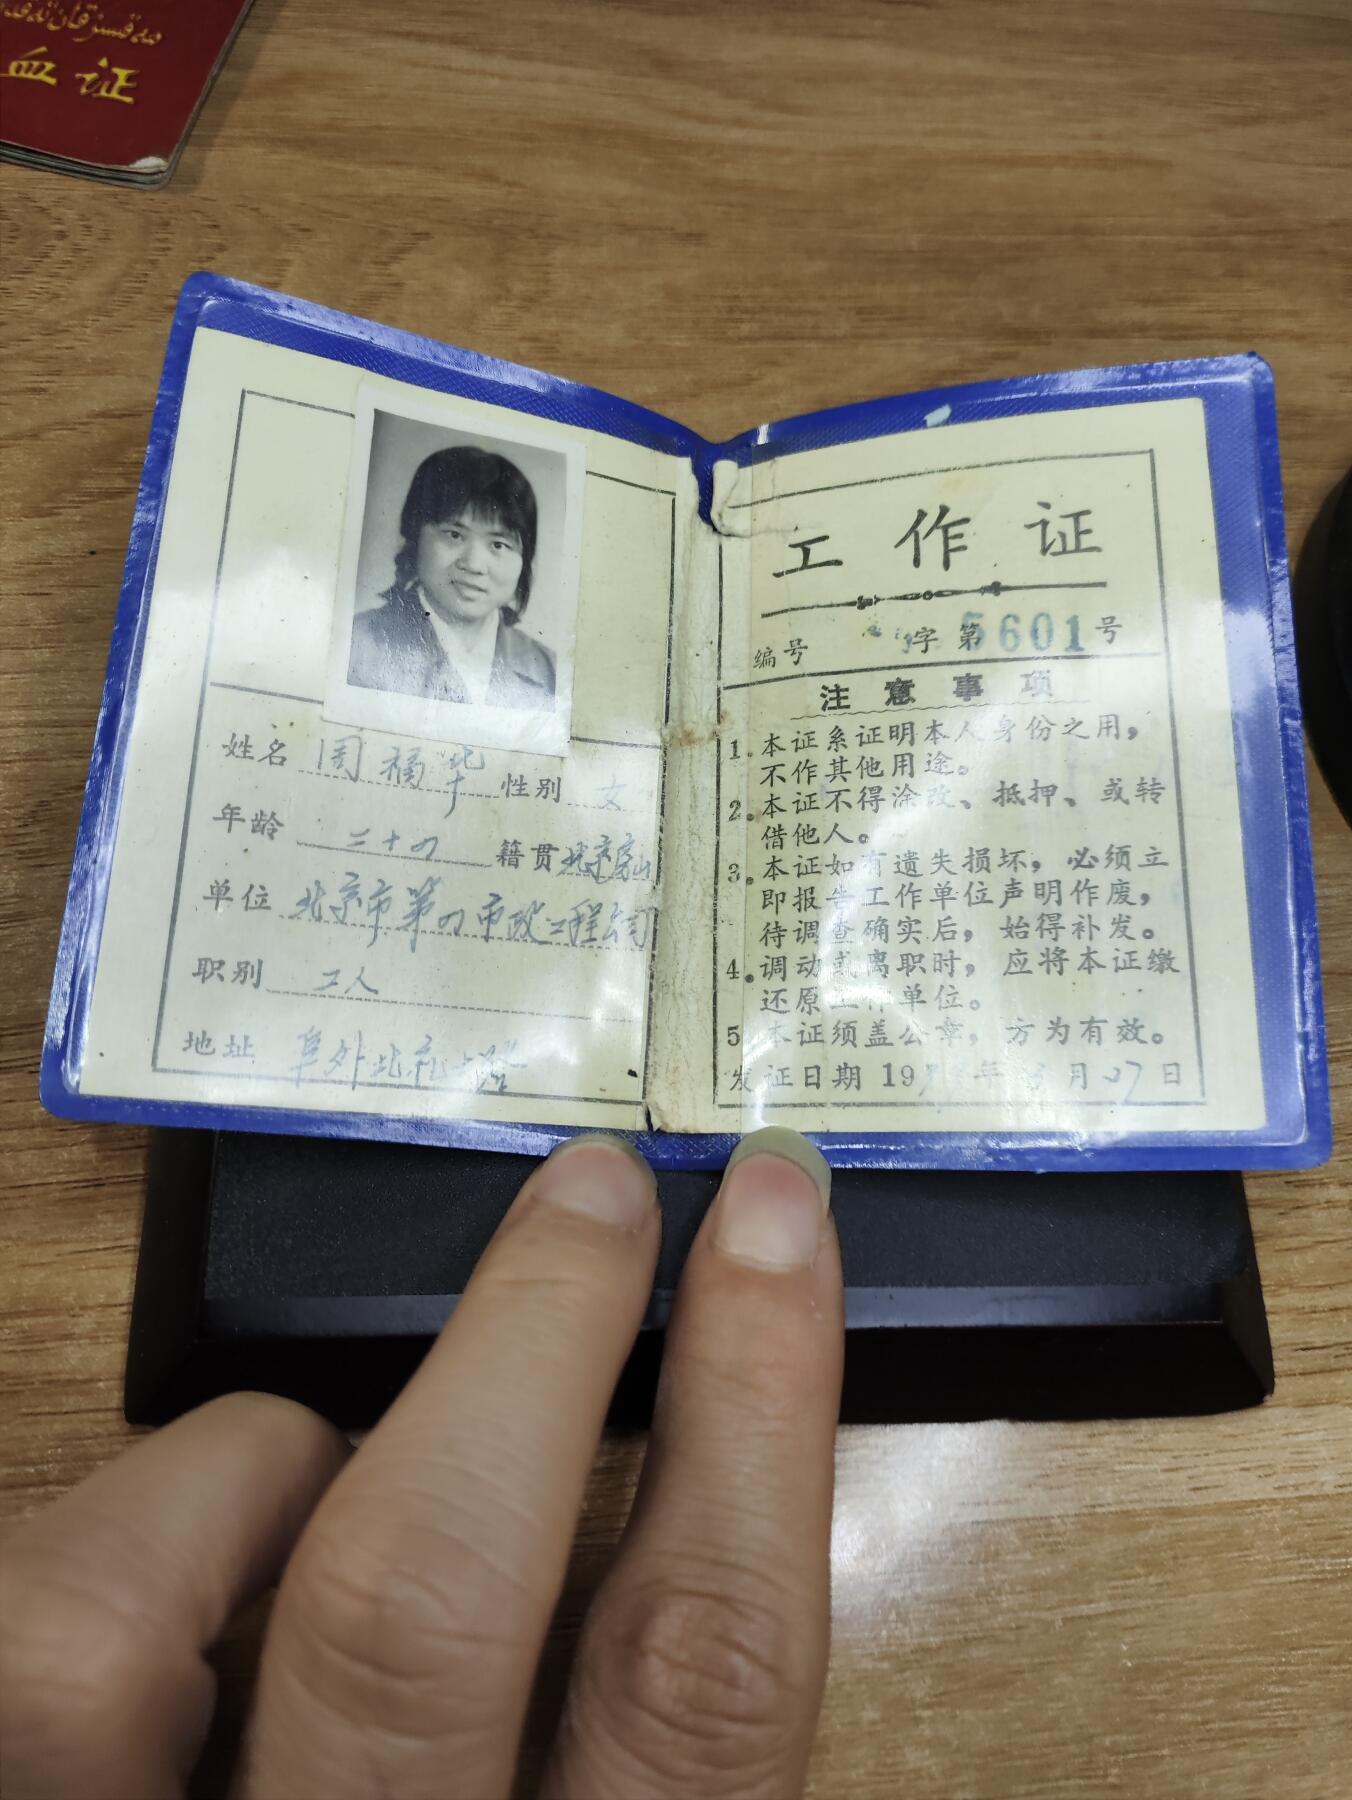 血证
姓名 周福华 性别 女
年龄 二十四 籍贯 北京房山
单位 北京市第四市政工程公司
职别 工人
地址 阜外北礼士路
工作证
编号 字第5601号
注意事项
1. 本证系证明本人身份之用，
不作其他用途。
2. 本证不得涂改、抵押、或转
借他人。
3. 本证如有遗失损坏，必须立
即报告工作单位声明作废，
待调查确实后，始得补发。
4. 调动或离职时，应将本证缴
还原工作单位。
5 本证须盖公章，方为有效。
发证日期 19 年 月27日